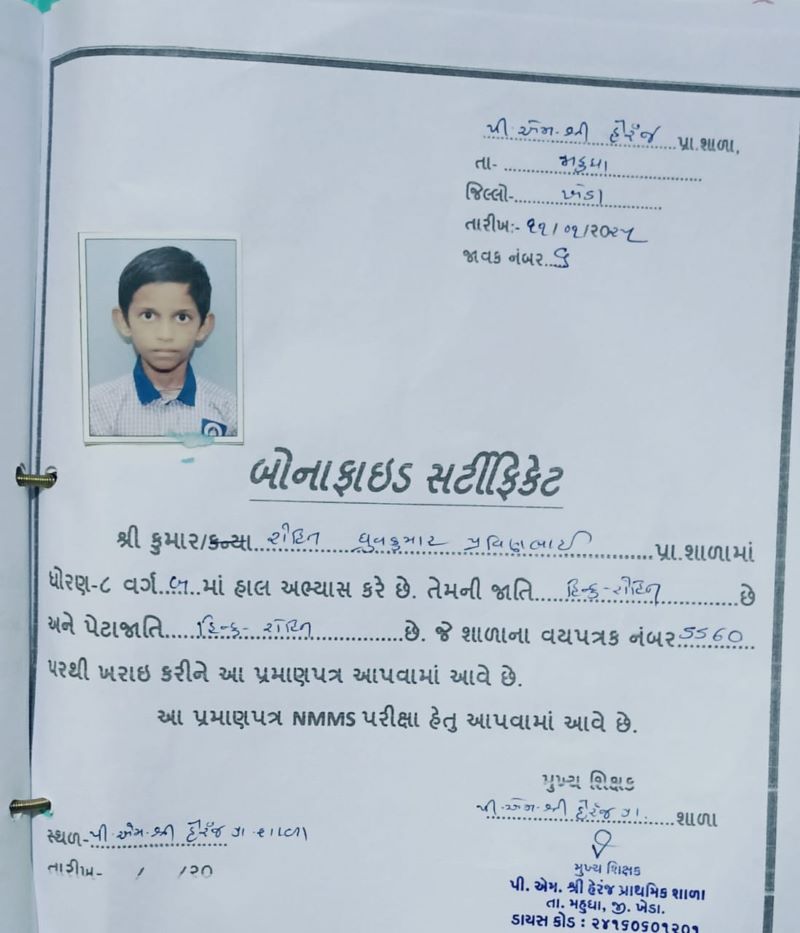 પી.એમ.શ્રી હેરંજ પ્રા.શાળા,
તા- મહુધા
જિલ્લો- ખેડા
તારીખ:- ૧૧/૦૧/૨૦૨૫
જાવક નંબર.
બોનાફાઇડ સર્ટીફિકેટ
શ્રી કુમાર/કન્યા રોહિત ધ્રુવકુમાર પ્રવિણભાઈ પ્રા.શાળામાં
ધોરણ-૮ વર્ગ બ માં હાલ અભ્યાસ કરે છે. તેમની જાતિ હિન્દુ-રોહિત છે
અને પેટાજાતિ હિન્દુ-રોહિત છે. જે શાળાના વયપત્રક નંબર ૫૫૬૦
પરથી ખરાઇ કરીને આ પ્રમાણપત્ર આપવામાં આવે છે.
આ પ્રમાણપત્ર NMMS પરીક્ષા હેતુ આપવામાં આવે છે.
મુખ્ય શિક્ષક
પી.એમ.શ્રી હેરંજ શાળા
સ્થળ- પી.એમ.શ્રી હેરંજ શાળા
તારીખ- / /૨૦
મુખ્ય શિક્ષક
પી. એમ. શ્રી હેરંજ પ્રાથમિક શાળા
તા. મહુધા, જી. ખેડા.
ડાયસ કોડ : ૨૪૧૬૦૬૦૧૨૦૧